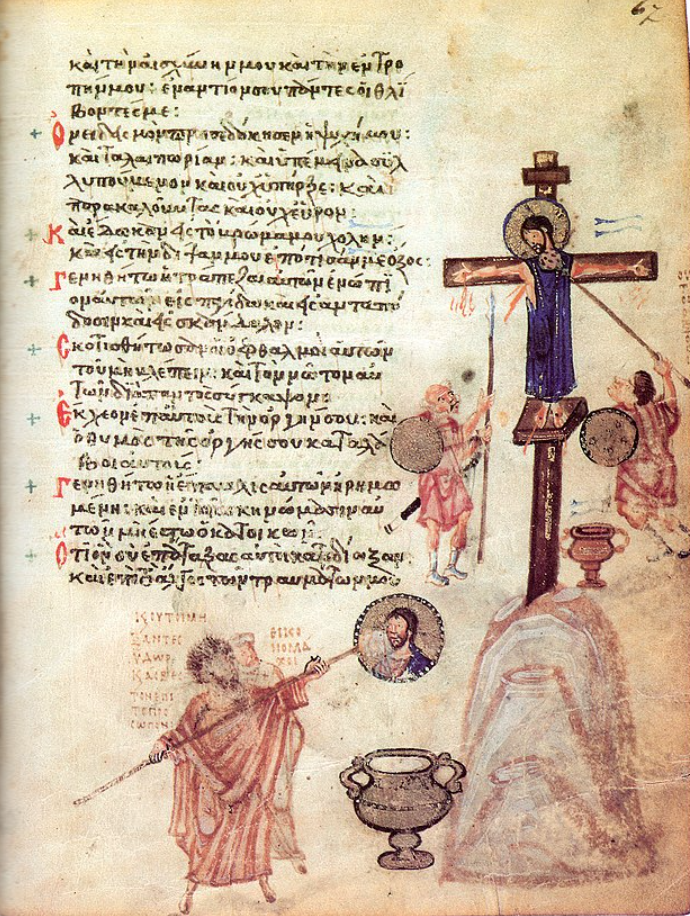 67
καὶ τὴν αἰσχύνην μου καὶ τὴν ἐντρο
πήν μου: ἐναντίον σου πάντες οἱ θλί
βοντές με:
Ὀνειδισμὸν προσεδόκησεν ἡ ψυχή μου:
καὶ ταλαιπωρίαν: καὶ ὑπέμεινα συλ
λυπούμενον καὶ οὐχ ὑπῆρξε: καὶ
παρακαλοῦντας καὶ οὐχ εὗρον:
Καὶ ἔδωκαν εἰς τὸ βρῶμά μου χολήν:
καὶ εἰς τὴν δίψαν μου ἐπότισάν με ὄξος:
Γενηθήτω ἡ τράπεζα αὐτῶν ἐνώπι
ον αὐτῶν εἰς παγίδα καὶ εἰς ἀνταπό
δοσιν καὶ εἰς σκάνδαλον:
Σκοτισθήτωσαν οἱ ὀφθαλμοὶ αὐτῶν
τοῦ μὴ βλέπειν: καὶ τὸν νῶτον αὐ
τῶν διὰ παντὸς σύγκαμψον:
Ἔκχεον ἐπ' αὐτοὺς τὴν ὀργήν σου: καὶ
ὁ θυμὸς τῆς ὀργῆς σου καταλά
βοι αὐτούς:
Γενηθήτω ἡ ἔπαυλις αὐτῶν ἠρημω
μένη: καὶ ἐν τοῖς σκηνώμασιν αὐ
τῶν μὴ ἔστω ὁ κατοικῶν:
Ὅτι ὃν σὺ ἐπάταξας αὐτοὶ κατεδίωξαν
καὶ ἐπὶ τὸ ἄλγος τῶν τραυμάτων μου
ΕΙΚΟ
ΝΟΜΑ
ΧΟΙ
ΥΔΩΡ